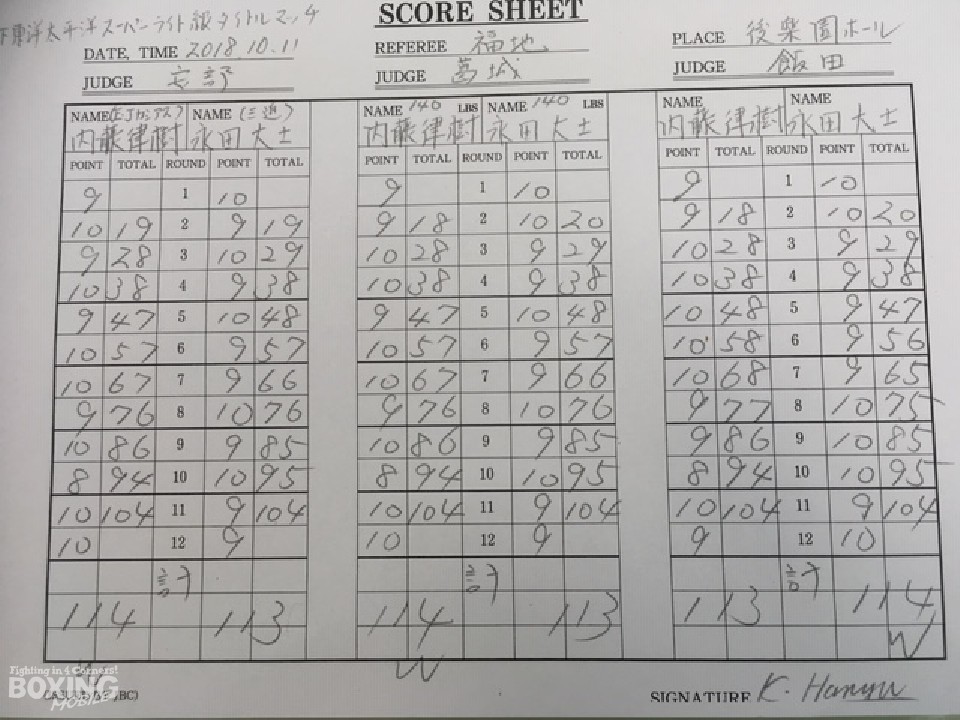 東洋太平洋スーパーライト級タイトルマッチ
SCORE SHEET
DATE, TIME 2018.10.11
REFEREE 福地
PLACE 後楽園ホール
JUDGE
JUDGE 葛城
JUDGE 飯田
NAME NAME (三迫) NAME 140 LBS NAME 140 LBS NAME NAME
内藤律樹 永田大士 内藤律樹 永田大士 内藤律樹 永田大士
POINT TOTAL ROUND POINT TOTAL POINT TOTAL ROUND POINT TOTAL POINT TOTAL ROUND POINT TOTAL
9 1 10 9 1 10 9 1 10
10 19 2 9 19 9 18 2 10 20 9 18 2 10 20
9 28 3 10 29 10 28 3 9 29 10 28 3 9 29
10 38 4 9 38 10 38 4 9 38 10 38 4 9 38
9 47 5 10 48 9 47 5 10 48 10 48 5 9 47
10 57 6 9 57 10 57 6 9 57 10 58 6 9 56
10 67 7 9 66 10 67 7 9 66 10 68 7 9 65
9 76 8 10 76 9 76 8 10 76 9 77 8 10 75
10 86 9 9 85 10 86 9 9 85 9 86 9 10 85
8 94 10 10 95 8 94 10 10 95 8 94 10 10 95
10 104 11 9 104 10 104 11 9 104 10 104 11 9 104
10 12 9 10 12 9 9 12 10
計 計 計
114 113 114 113 113 114
W W W
Fighting in 4 Corners!
BOXING
MOBILE
SIGNATURE K. Hanyu